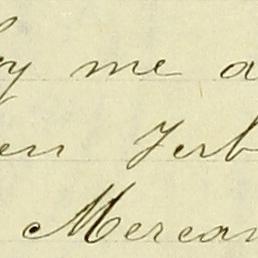 by me a
en Ferb
Mercan